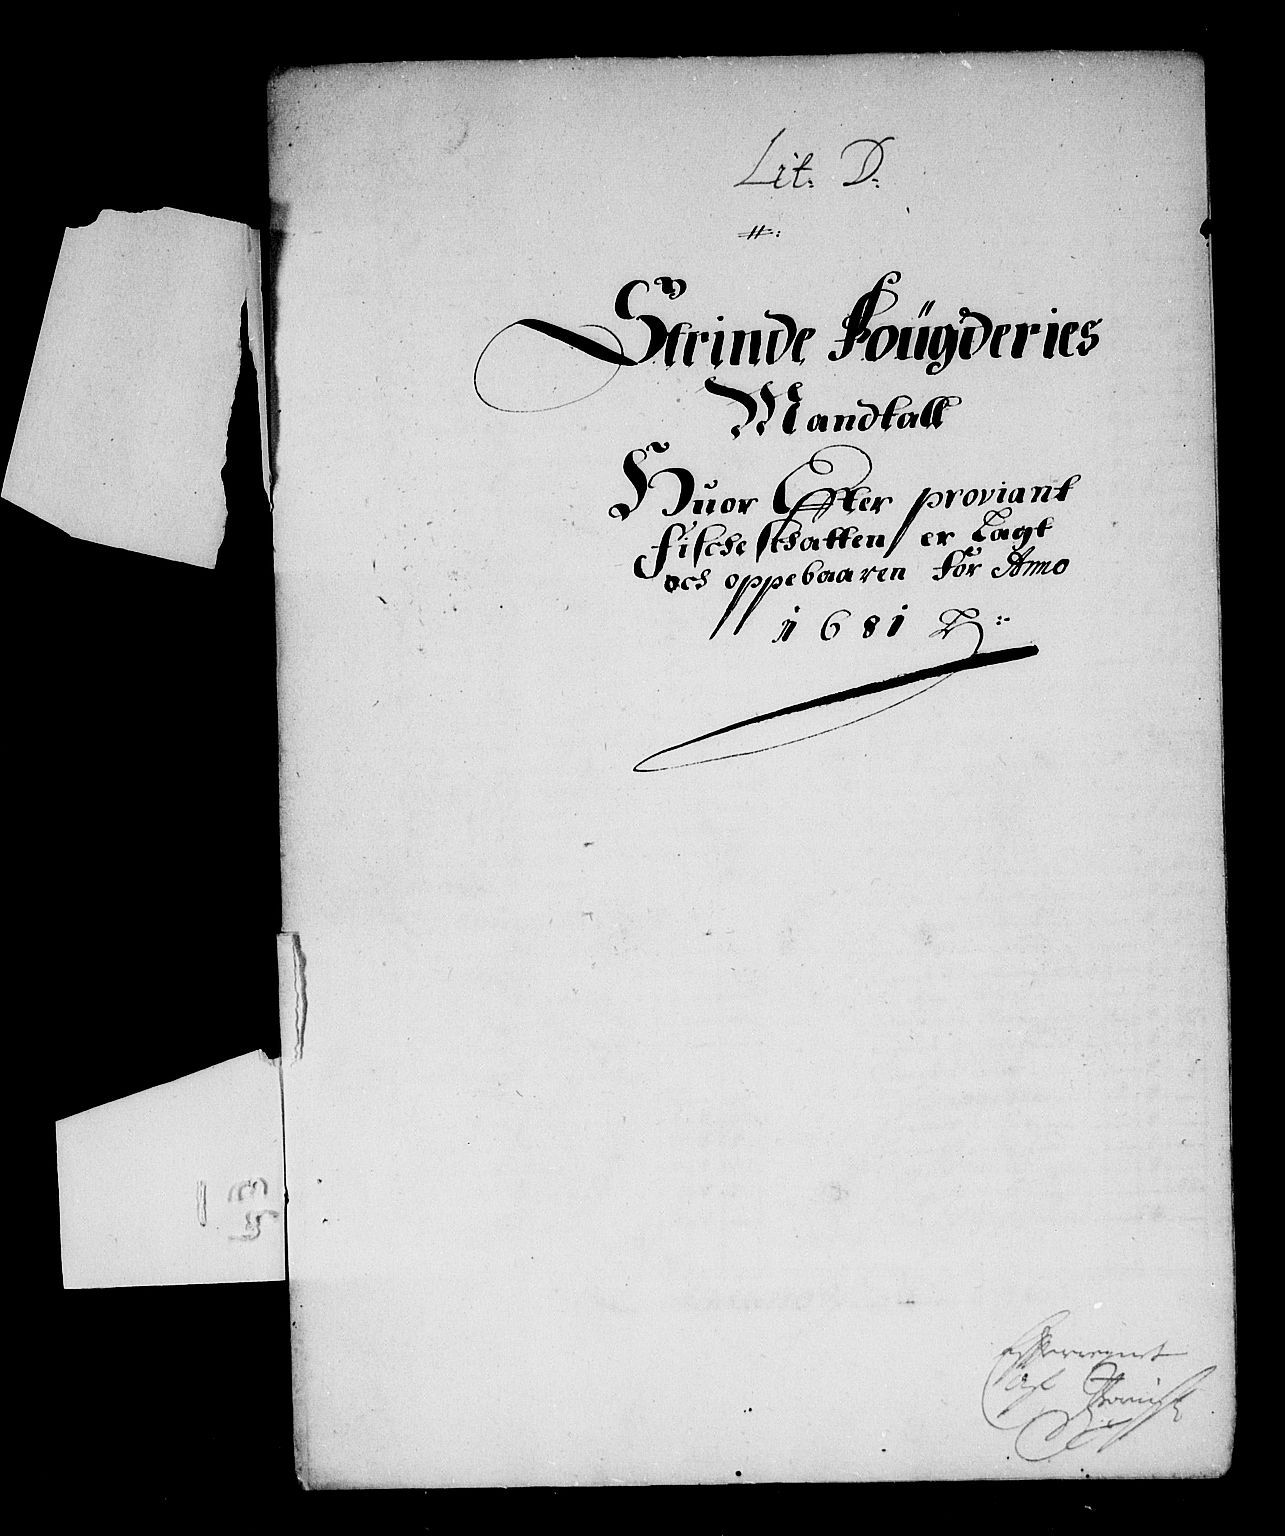 Lit: D:
#:
Strinde Foügderies
Mandtall
Huor Effter proviant
fische schatten er Lagt
och oppebaaren för Anno
1681
efterregnet